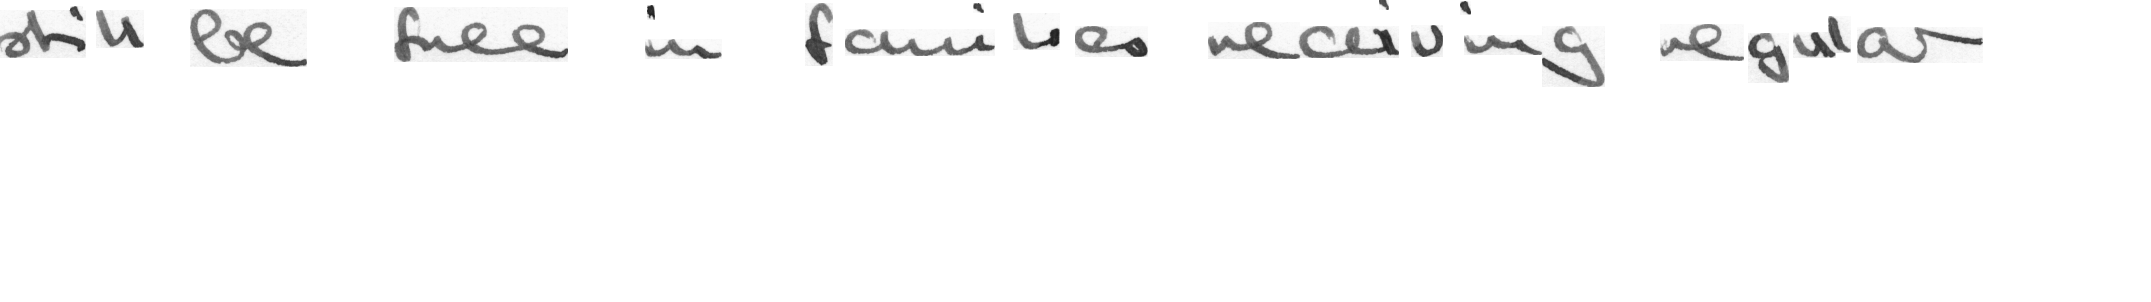 still be free in families receiving regular